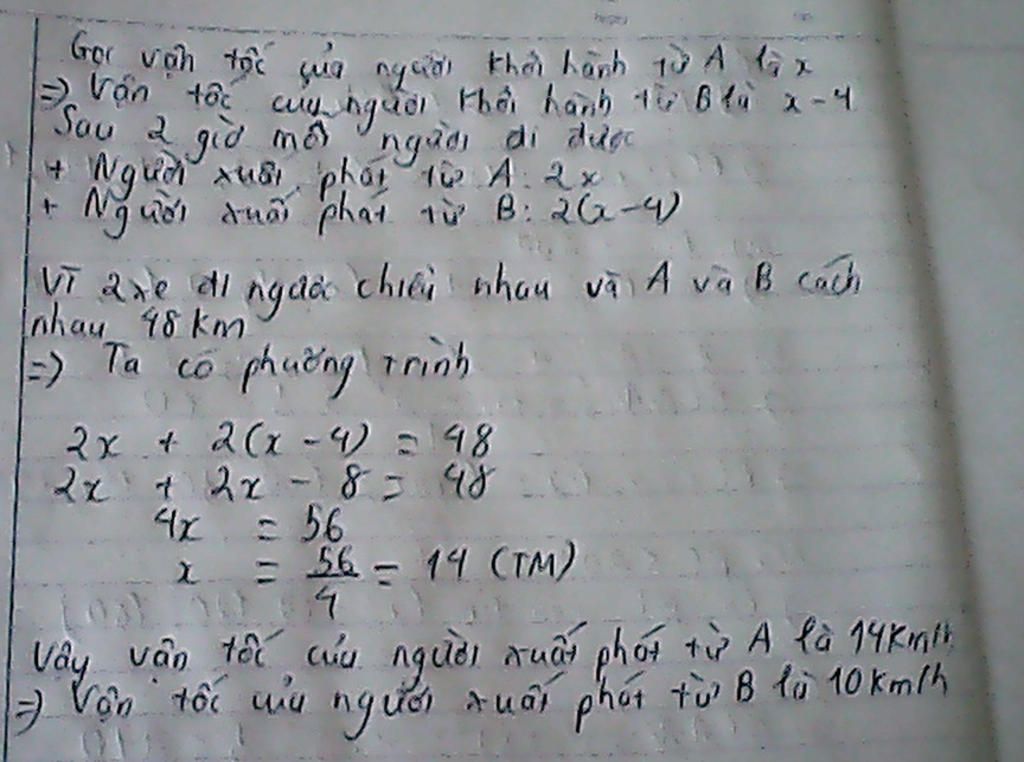 Gọi vận tốc của người khởi hành từ A là x
=> Vận tốc của người khởi hành từ B là x - 4
Sau 2 giờ mỗi người đi được
+ Người xuất phát từ A: 2x
+ Người xuất phát từ B: 2(x-4)
Vì 2 xe đi ngược chiều nhau và A và B cách
nhau 48 km
=> Ta có phương trình
2x + 2(x - 4) = 48
2x + 2x - 8 = 48
4x = 56
x = 56/4 = 14 (TM)
Vậy vận tốc của người xuất phát từ A là 14 km/h
=> Vận tốc của người xuất phát từ B là 10 km/h